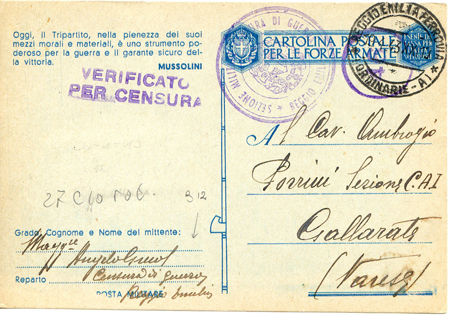 Oggi, il Tripartito, nella pienezza dei suoi
mezzi morali e materiali, è uno strumento po-
deroso per la guerra e il garante sicuro del-
la vittoria.
MUSSOLINI
VERIFICATO
PER CENSURA
CARTOLINA POSTALE
PER LE FORZE ARMATE
REGGIO EMILIA FERROVIA
ORDINARIE - A
Al Cav. Ambrogio
Porrini Sezione C.A.I
Gallarate
(Varese)
27 C
312
Grado, Cognome e Nome del mittente:
Magg.re
Angelo
Reparto Censura di guerra
POSTA MILITARE Reggio Emilia